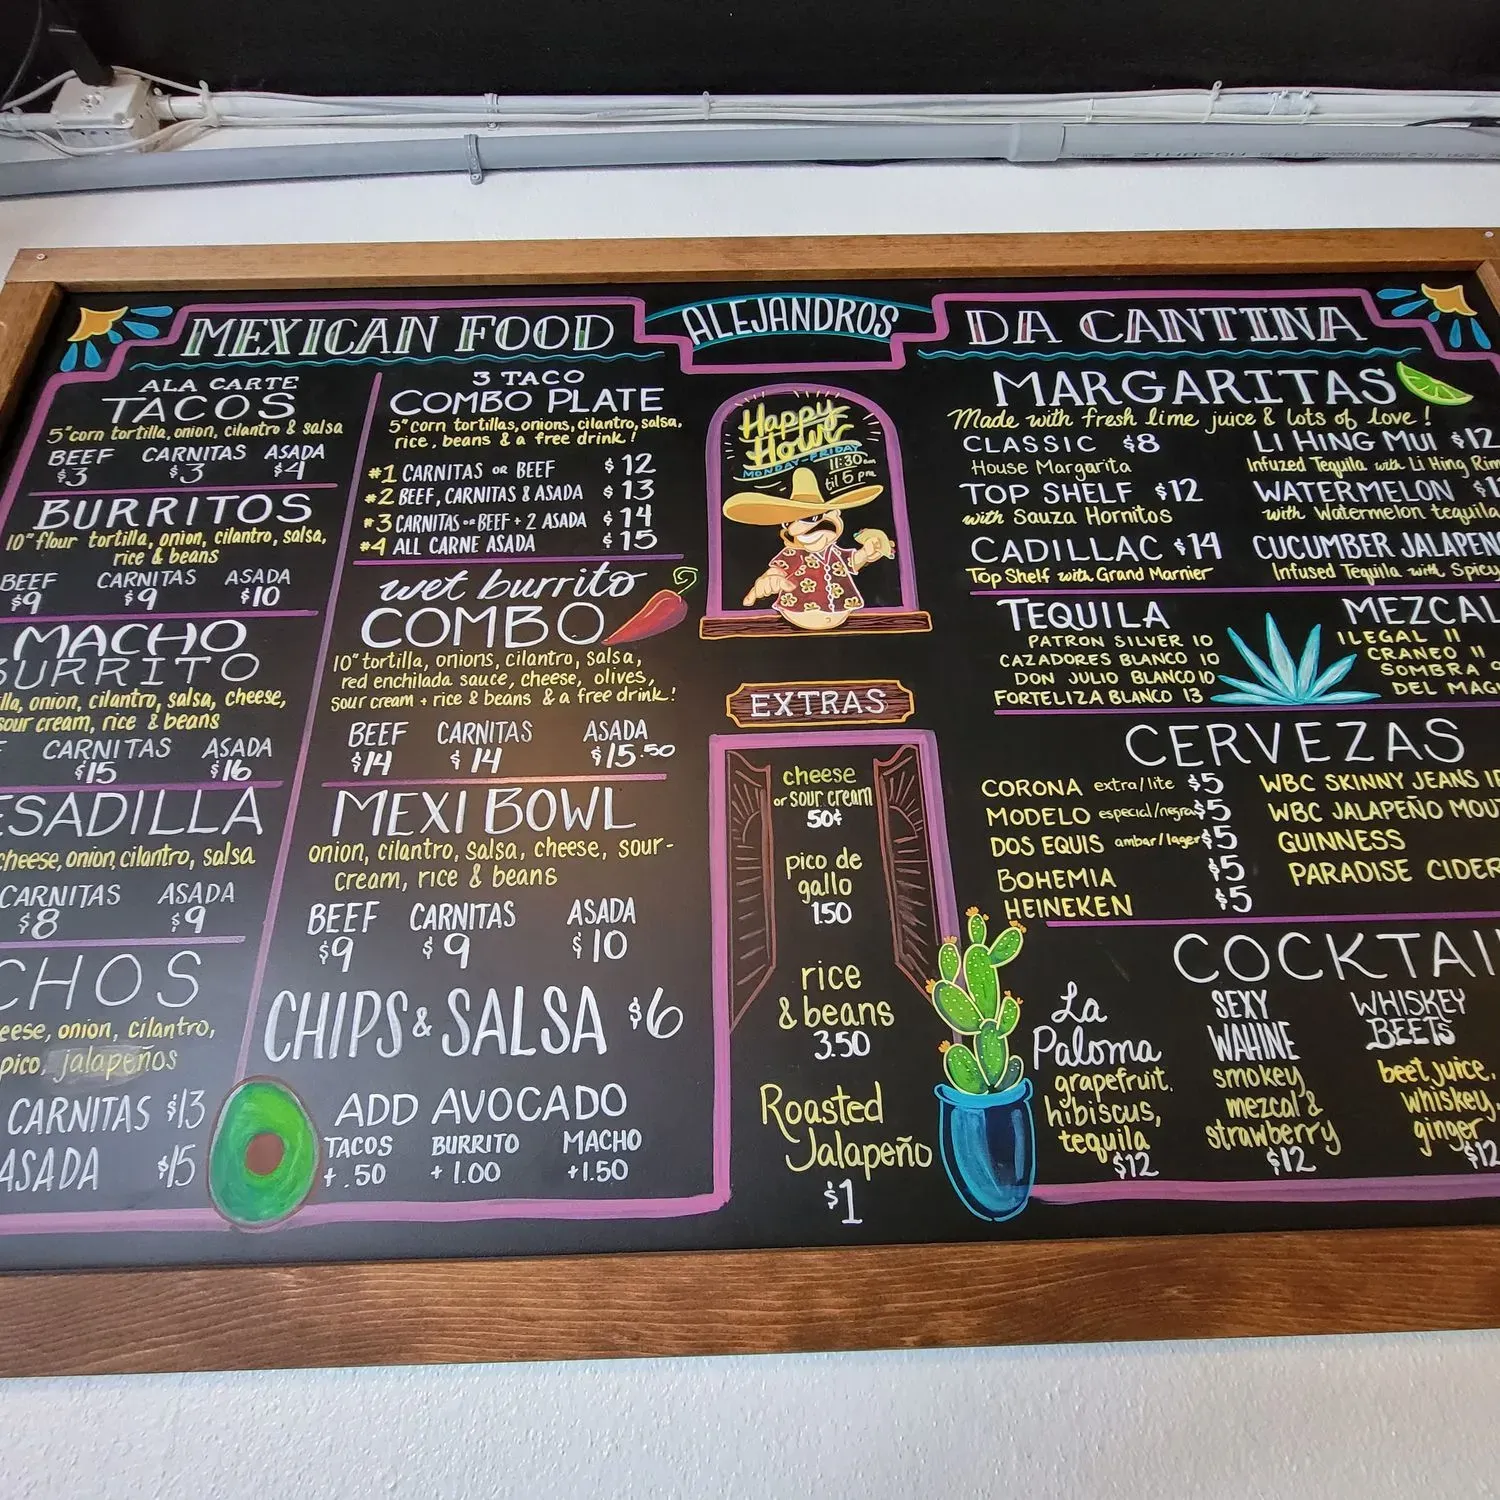 ALEJANDROS
MEXICAN FOOD
ALA CARTE
TACOS
5" corn tortilla, onion, cilantro & salsa
BEEF CARNITAS ASADA
$3 $3 $4
BURRITOS
10" flour tortilla, onion, cilantro, salsa,
rice & beans
BEEF CARNITAS ASADA
$9 $9 $10
MACHO
BURRITO
onion, cilantro, salsa, cheese,
sour cream, rice & beans
CARNITAS ASADA
$15 $16
ESADILLA
cheese, onion, cilantro, salsa
CARNITAS ASADA
$8 $9
CHOS
eese, onion, cilantro,
pico, jalapeños
CARNITAS $13
ASADA $15
3 TACO
COMBO PLATE
5" corn tortillas, onions, cilantro, salsa,
rice, beans & a free drink!
#1 CARNITAS OR BEEF $12
#2 BEEF, CARNITAS & ASADA $13
#3 CARNITAS OR BEEF + 2 ASADA $14
#4 ALL CARNE ASADA $15
wet burrito
COMBO
10" tortilla, onions, cilantro, salsa,
red enchilada sauce, cheese, olives,
sour cream + rice & beans & a free drink!
BEEF CARNITAS ASADA
$14 $14 $15.50
MEXI BOWL
onion, cilantro, salsa, cheese, sour-
cream, rice & beans
BEEF CARNITAS ASADA
$9 $9 $10
CHIPS & SALSA $6
ADD AVOCADO
TACOS BURRITO MACHO
+.50 +1.00 +1.50
Happy
Hour
MONDAY-FRIDAY
11:30am
til 5 pm
EXTRAS
cheese
or sour cream
50¢
pico de
gallo
1.50
rice
& beans
3.50
Roasted
Jalapeño
$1
DA CANTINA
MARGARITAS
Made with fresh lime juice & lots of love!
CLASSIC $8
House Margarita
TOP SHELF $12
with Sauza Hornitos
CADILLAC $14
Top Shelf with Grand Marnier
LI HING MUI $12
Infuzed Tequila with Li Hing Rim
WATERMELON
with Watermelon tequila
CUCUMBER JALAPEN
Infused Tequila with Spicy
TEQUILA
PATRON SILVER 10
CAZADORES BLANCO 10
DON JULIO BLANCO 10
FORTELIZA BLANCO 13
MEZCAL
ILEGAL 11
CRANEO 11
SOMBRA 9
DEL MAG
CERVEZAS
CORONA extra/lite $5
MODELO especial/negra $5
DOS EQUIS ambar/lager $5
BOHEMIA $5
HEINEKEN $5
WBC SKINNY JEANS
WBC JALAPEÑO MOU
GUINNESS
PARADISE CIDER
COCKTAI
La
Paloma
grapefruit,
hibiscus,
tequila
$12
SEXY
WAHINE
smokey
mezcal &
strawberry
$12
WHISKEY
BEETS
beet juice,
whiskey,
ginger
$12